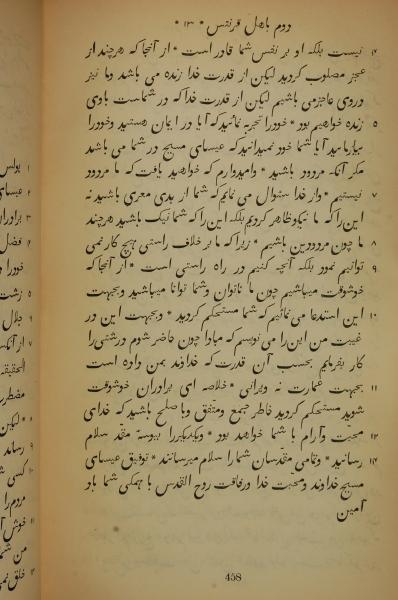 دوم باهل قرنتس * ۱۳ *
۴ نیست بلکه او بر نفس شما قادر است * از آنجا که هرچند از
عجز مصلوب گردید لیکن از قدرت خدا زنده می باشد وما نیز
دروی عاجزمی باشیم لیکن از قدرت خدا که در شماست باوی
۵ زنده خواهیم بود * خودرا تجربه نمائید که آیا در ایمان هستید وخودرا
بیازمایید آیا شما خود نمیدانید که عیسای مسیح در شما می باشد
مگر آنکه مردود باشید * وامیدوارم که خواهید یافت که ما مردود
۷ نیستیم * واز خدا سئوال می نمایم که شما از بدی معری باشید نه
این را که ما نیکو ظاهر گردیم بلکه این را که شما نیک باشید هرچند
۸ ما چون مردودین باشیم * زیرا که ما بر خلاف راستی هیچ کار نمی
۹ توانیم نمود بلکه آنچه کنیم در راه راستی است * از آنجا که
خوشوقت میباشیم چون ما ناتوان وشما توانا میباشید وبجهت
۱۰ این استدعا می نمائیم که شما مستحکم گردید * وبجهت این در
غیبت من این را می نویسم که مبادا چون حاضر شوم درشتی را
کار بفرمایم بحسب آن قدرت که خداوند بمن داده است
۱۱ بجهت عمارت نه ویرانی * خلاصه ای برادران خوشوقت
شوید مستحکم گردید خاطر جمع ومتفق وبا صلح باشید که خدای
۱۲ محبت وآرام با شما خواهد بود * ویکدیگررا ببوسهٔ مقدسه سلام
۱۳ رسانید * وتمامی مقدسان شمارا سلام میرسانند * توفیق عیسای
مسیح خداوند ومحبت خدا ورفاقت روح القدس با همگی شما باد
آمین
458